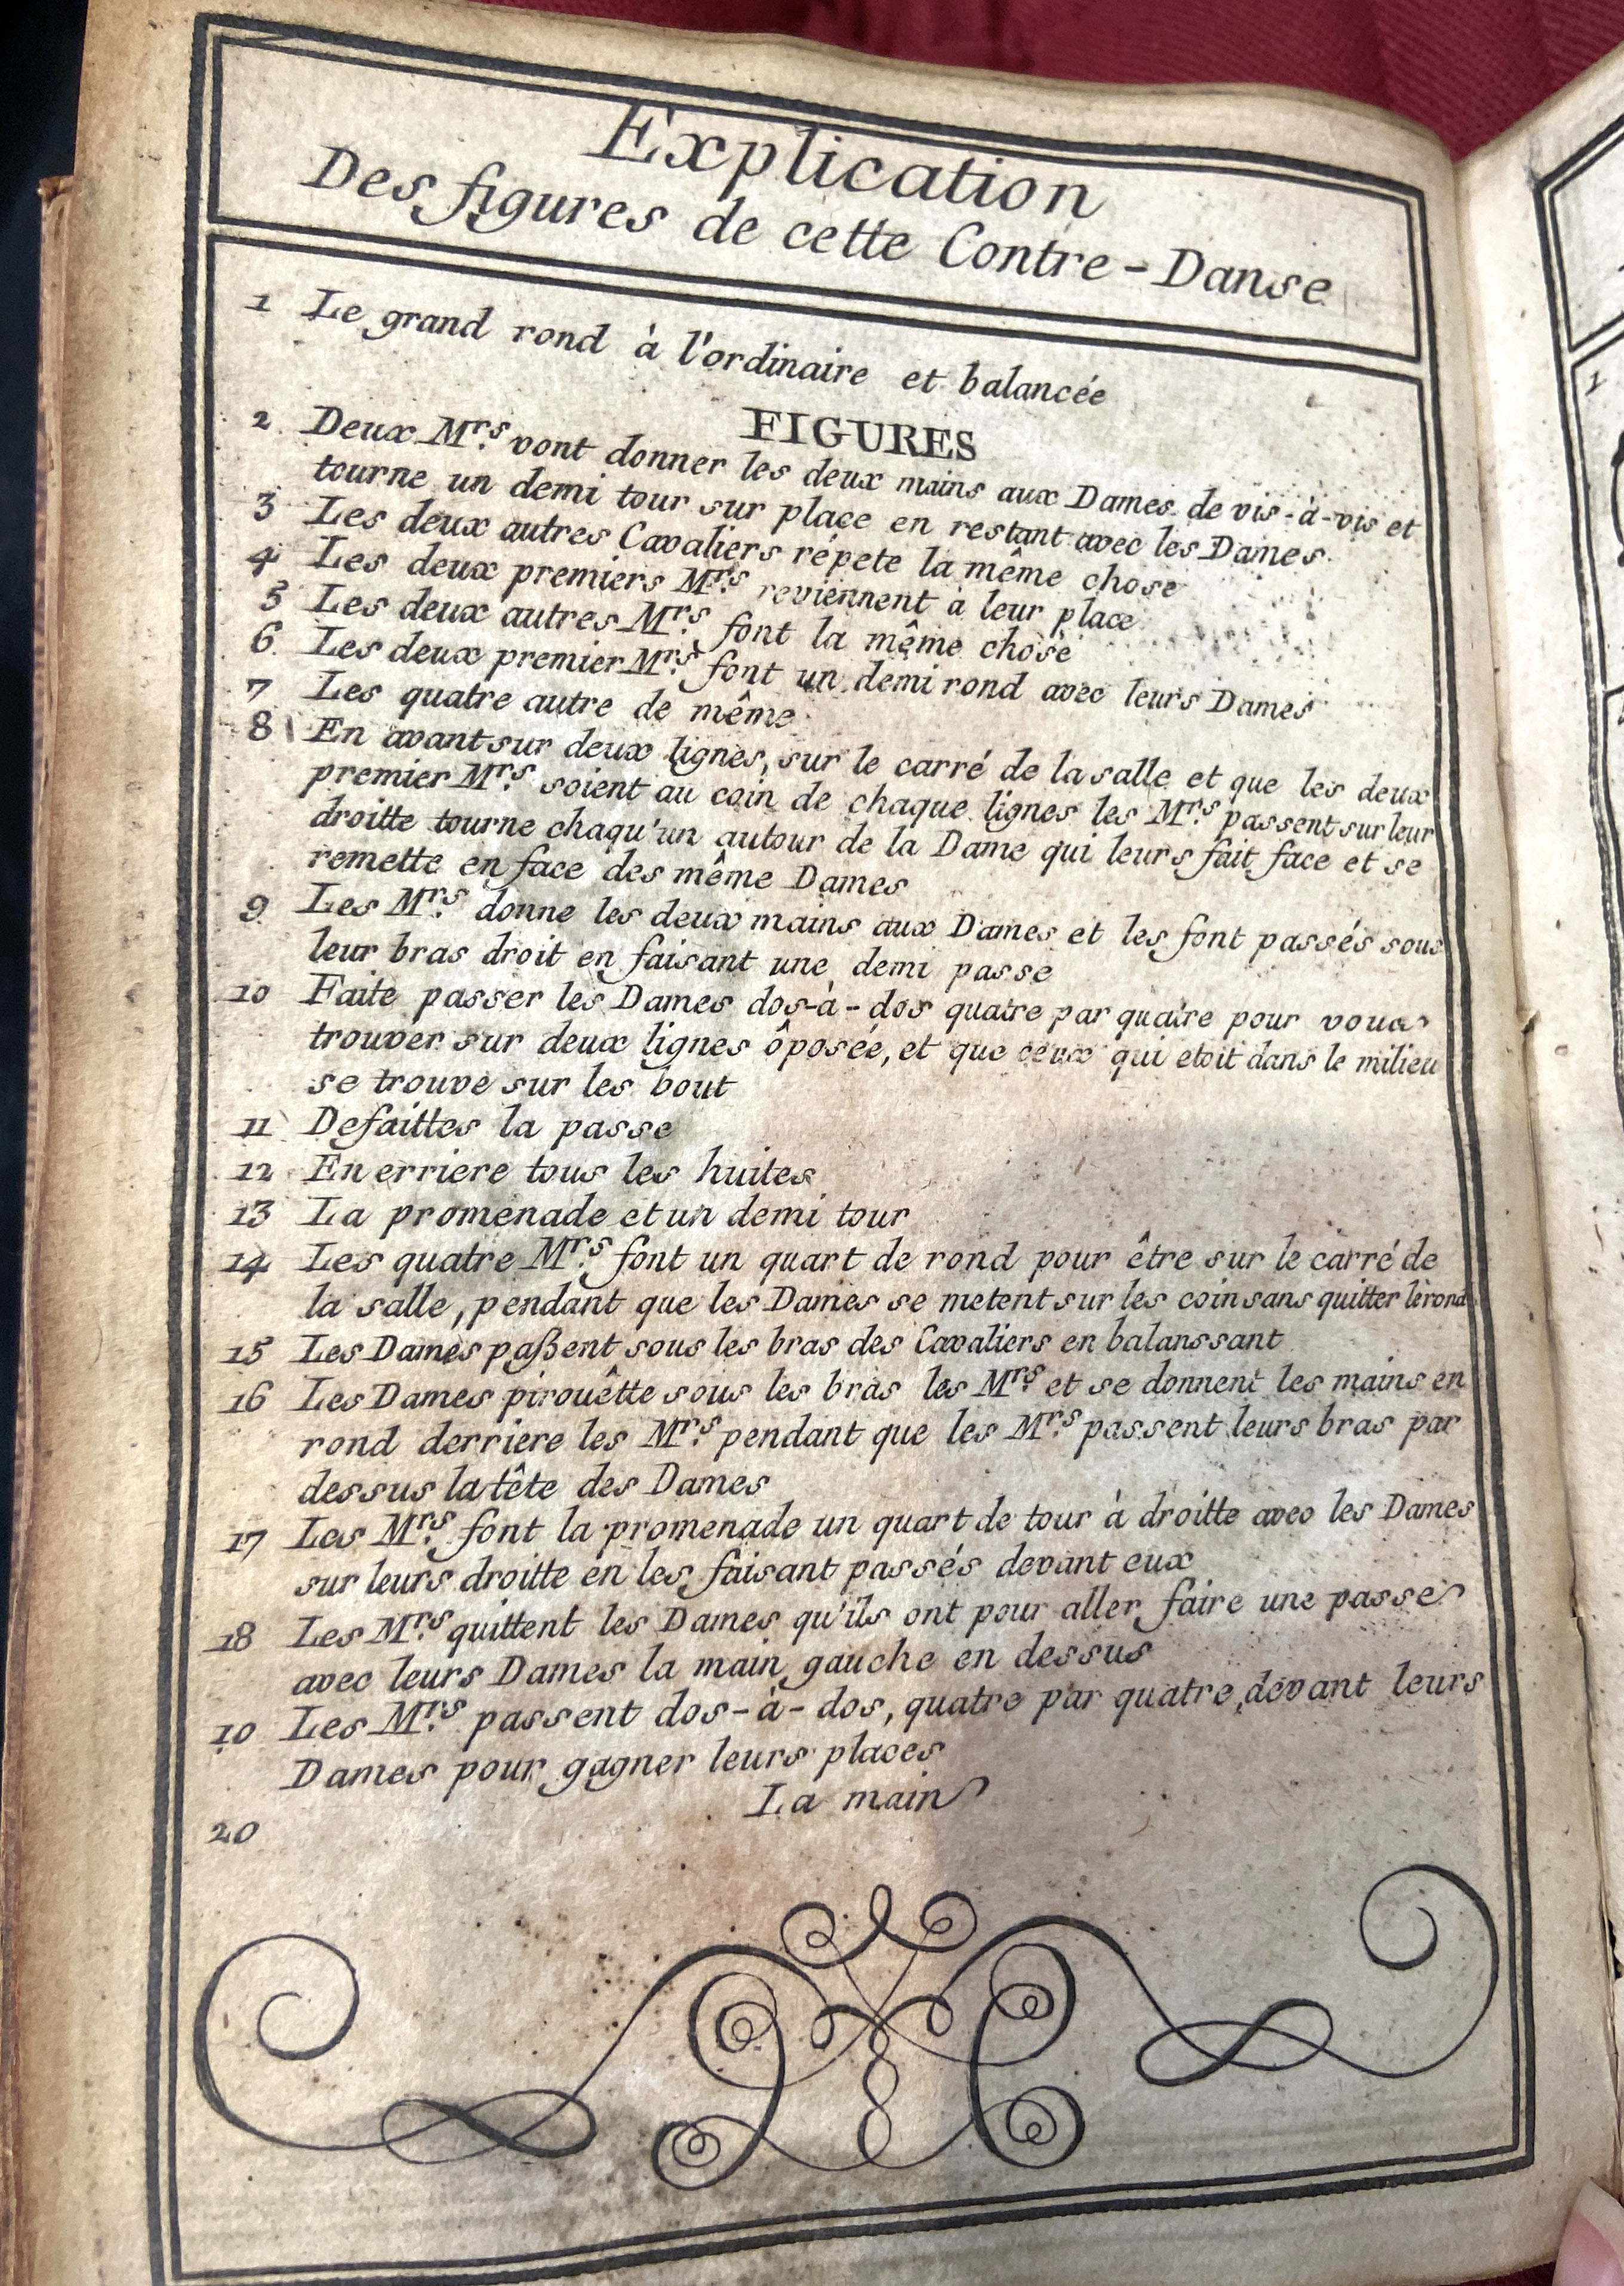 Explication
Des figures de cette Contre-Danse
1 Le grand rond à l'ordinaire et balancée
FIGURES
2. Deux Mrs. vont donner les deux mains aux Dames de vis-à-vis et
tourne un demi tour sur place en restant avec les Dames.
3 Les deux autres Cavaliers répete la même chose
4 Les deux premiers Mrs. reviennent à leur place
5 Les deux autres Mrs. font la même chose
6. Les deux premier Mrs. font un demi rond avec leurs Dames
7 Les quatre autre de même
8 En avant sur deux lignes, sur le carré de la salle et que les deux
premier Mrs. soient au coin de chaque lignes les Mrs. passent sur leur
droitte tourne chaqu'un autour de la Dame qui leurs fait face et se
remette en face des même Dames
9. Les Mrs. donne les deux mains aux Dames et les font passés sous
leur bras droit en faisant une demi passe
10 Faite passer les Dames dos-à-dos quatre par quatre pour vous
trouver sur deux lignes ôposée, et que ceux qui etoit dans le milieu
se trouve sur les bout
11 Defaittes la passe
12 En erriere tous les huites
13 La promenade et un demi tour
14 Les quatre Mrs. font un quart de rond pour être sur le carré de
la salle, pendant que les Dames se metent sur les coin sans quitter le rond
15 Les Dames paßent sous les bras des Cavaliers en balanssant
16 Les Dames pirouêtte sous les bras les Mrs. et se donnent les mains en
rond derriere les Mrs. pendant que les Mrs. passent leurs bras par
dessus la tête des Dames
17 Les Mrs. font la promenade un quart de tour à droitte avec les Dames
sur leurs droitte en les faisant passés devant eux
18 Les Mrs. quittent les Dames qu'ils ont pour aller faire une passe
avec leurs Dames la main gauche en dessus
10 Les Mrs. passent dos-à-dos, quatre par quatre devant leurs
Dames pour gagner leurs places
20 La main
1